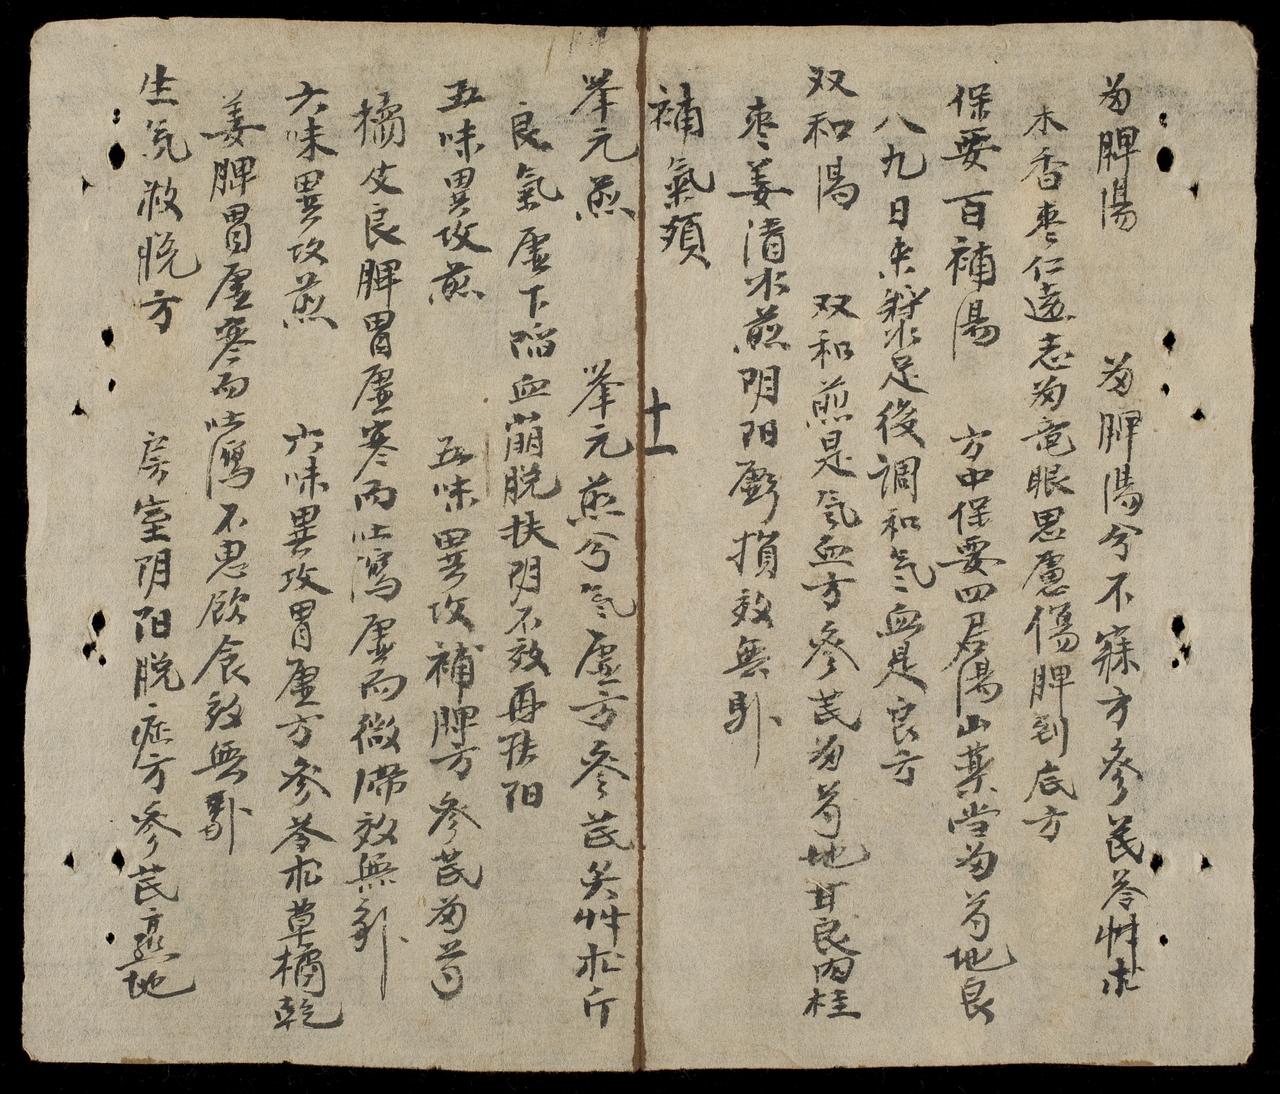 匋脾湯　匋脾湯兮不寐方參芪苓艸朮
木香棗仁遠志匋竜眼思慮傷脾到底方
保要百補湯　方中保要四君湯山藥当匋芍地良
八九日來漿足後調和气血是良方
双和湯　双和煎是气血方參芪匋芍地甘良肉桂
棗姜清水煎阴阳虧損效無卦
補氣類
举元煎　举元煎兮气虚方參芪炙艸朮斤
良氣虚下陷血崩脫扶阴不效再扶阳
五味異攻煎　五味異攻補脾方參芪匋芍
橘皮良脾胃虚寒而吐瀉虚而微滞效無卦
六味異攻煎　六味異攻胃虚方參苓朮草橘乾
姜脾胃虚寒而吐瀉不思飲食效無卦
生气救脫方　房室阴阳脫症方參芪熟地
十一